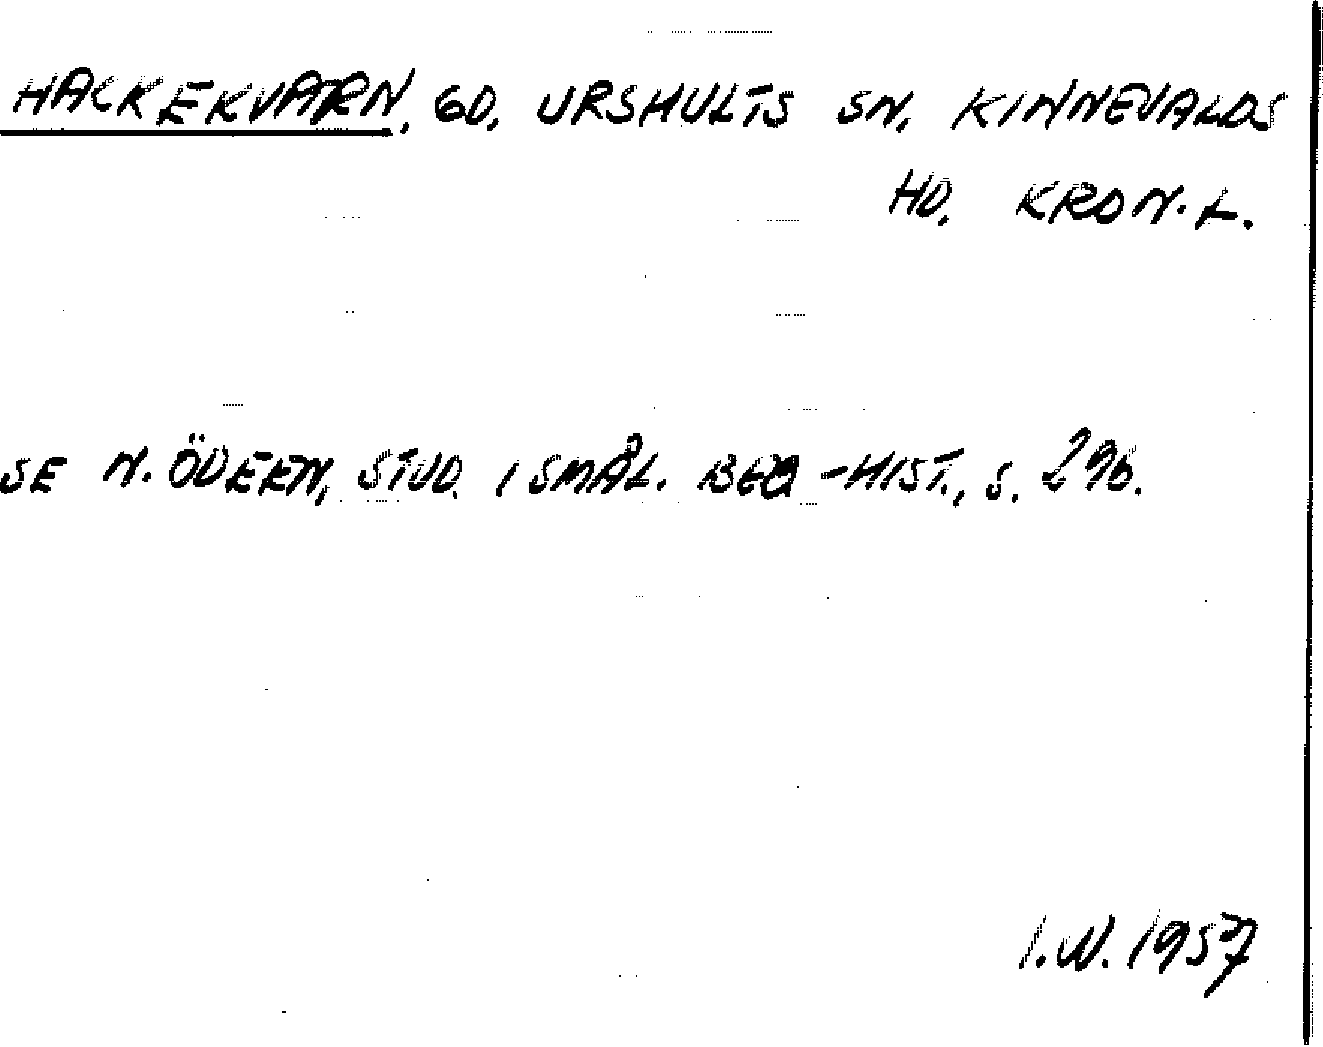 HACKEKVARN, GD, URSHULTS SN, KINNEVALDS
HD, KRON.L.
SE N. ÖDEEN, STUD. I SMÅL. BEB-HIST., S. 296.
I.W. 1957